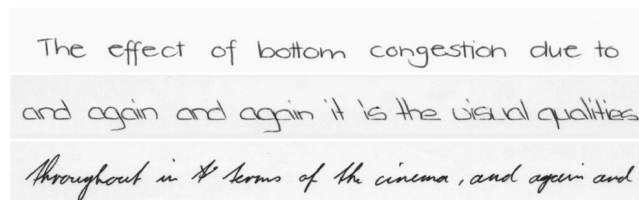 The effect of bottom congestion due to
and again and again it is the visual qualities
throughout in terms of the cinema, and again and